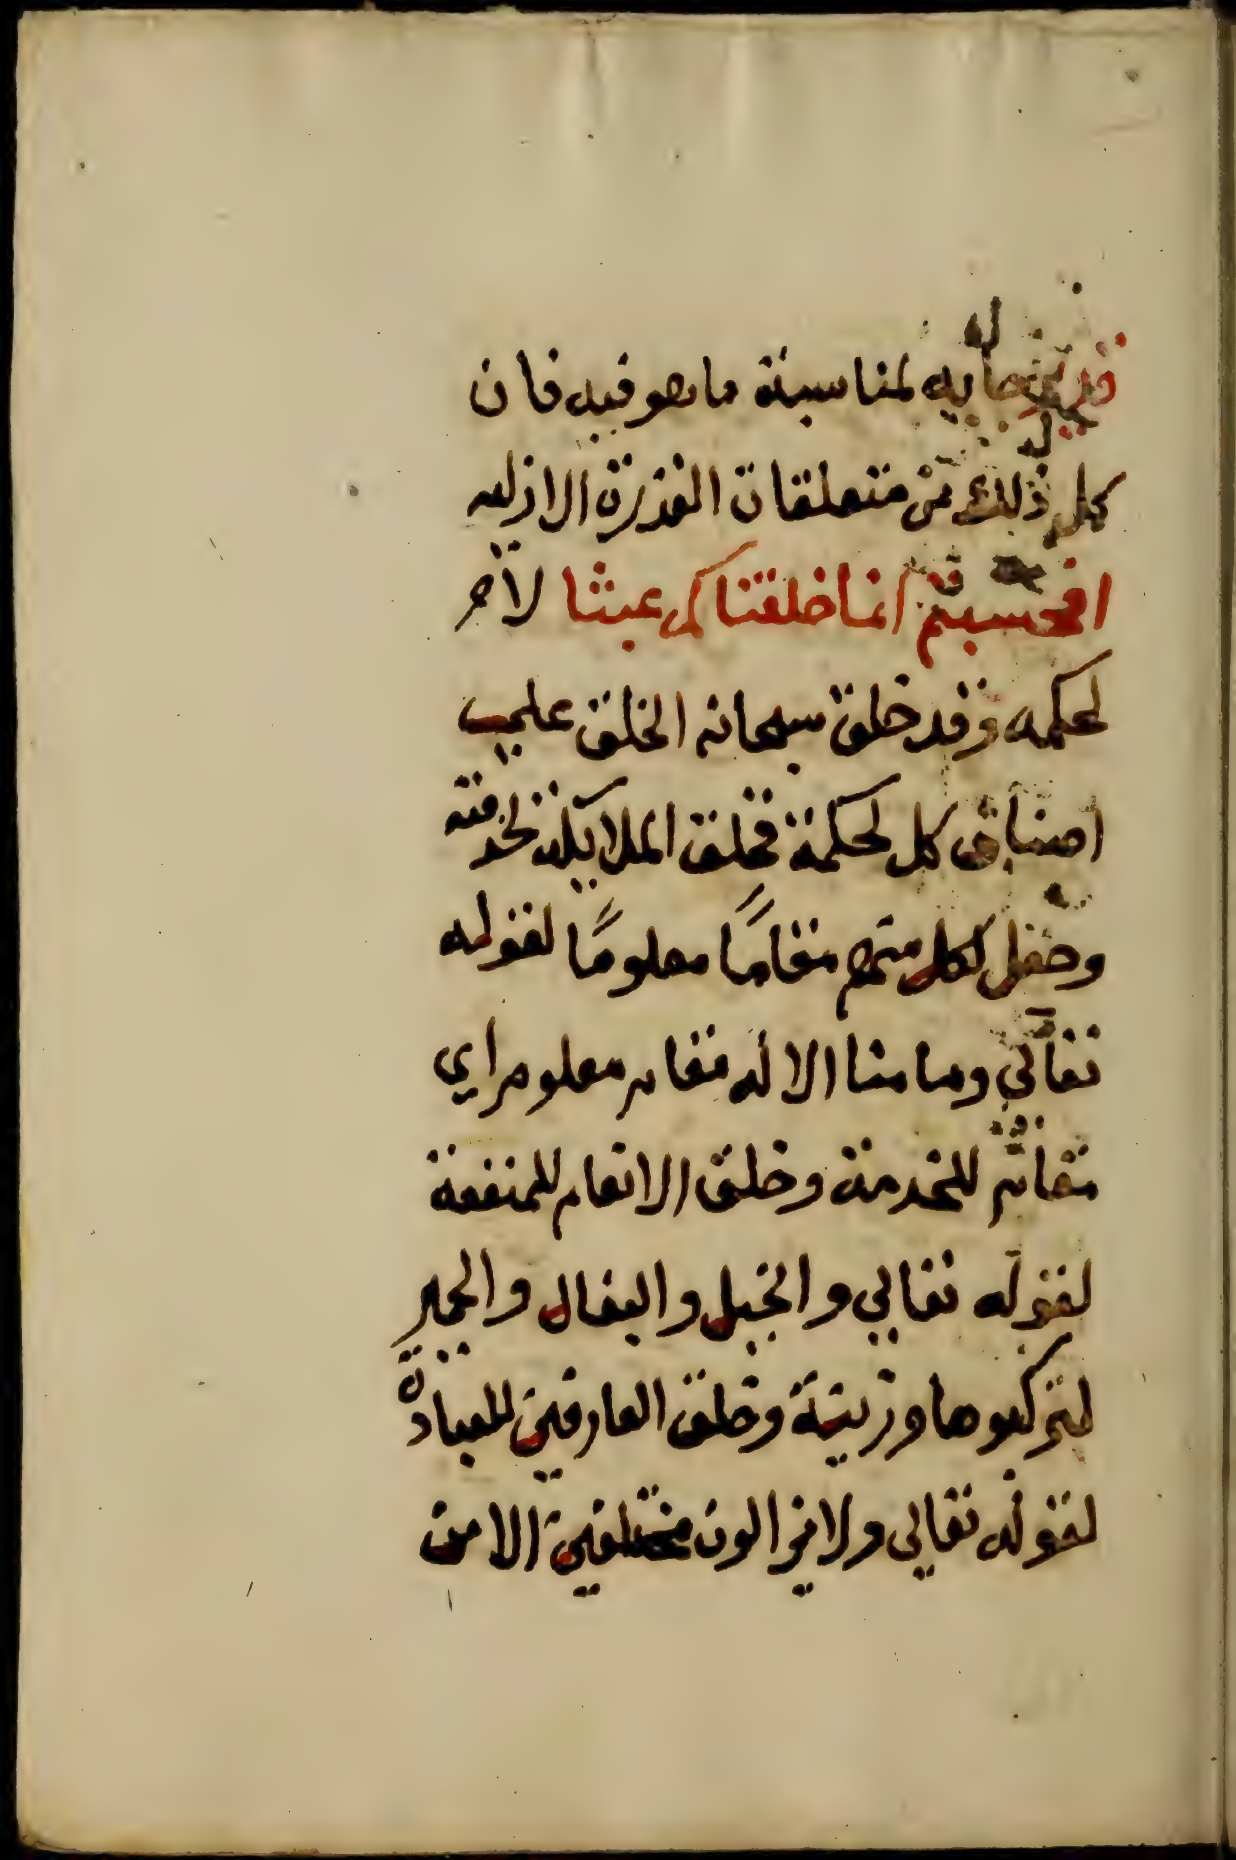 لمناسبة ما هو فيه فان
كل ذلك من متعلقات القدرة الازليه
افحسبتم انما خلقناكم عبثا لا
لحكمه وقد خلق سبحانه الخلق علي
اصناف كل لحكمة فخلق الملايكة لخدمته
وجعل لكل منهم مقامًا معلومًا لقوله
تعالي وما منا الا له مقام معلوم اي
مقام للخدمة وخلق الانعام للمنفعة
لقوله تعالي والخيل والبغال والحمير
لتركبوها وزينة وخلق العارفين للعبادة
لقوله تعالي ولا يزالون مختلفين الا من